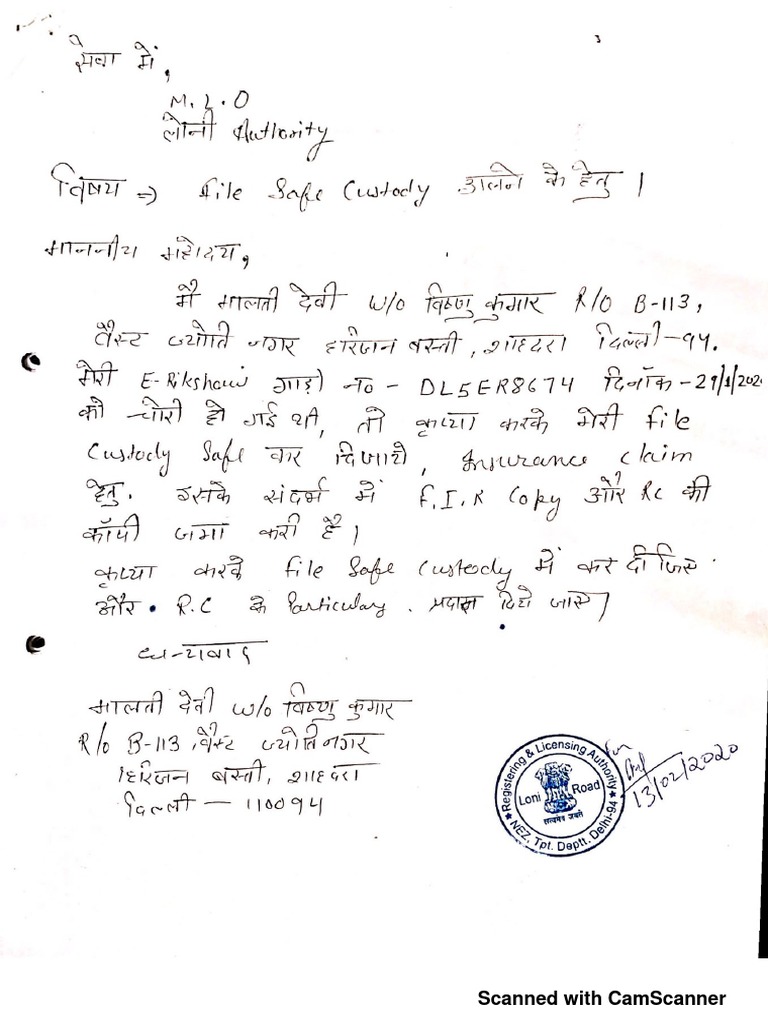 सेवा में,
M.L.O
लोनी Authority
विषय => file Safe Custody डालने के हेतु ।
माननीय महोदय,
मै मालती देवी W/o विष्णु कुमार R/o B-113,
वैस्ट ज्योति नगर हरिजन बस्ती, शाहदरा दिल्ली-94.
मेरी E-Rikshaw गाड़ी नo - DL5ER8674 दिनाँक - 29/1/202
को चोरी हो गई थी, तो कृप्या करके मेरी file
Custody Safe कर दिजाये, Insurance claim
हेतु. इसके संदर्भ में F.I.R Copy और Rc की
कॉपी जमा करी है ।
कृप्या करके file Safe Custody में कर दीजिए
और R.C के Particulary प्रदान दिये जाए।
धन्यवाद
मालती देवी W/o विष्णु कुमार
R/o B-113, वैस्ट ज्योति नगर
हरिजन बस्ती, शाहदरा
दिल्ली - 110094
Registering & Licensing Authority
Loni Road
सत्यमेव जयते
NEZ, Tpt. Deptt. Delhi-94
13/02/2020
Scanned with CamScanner